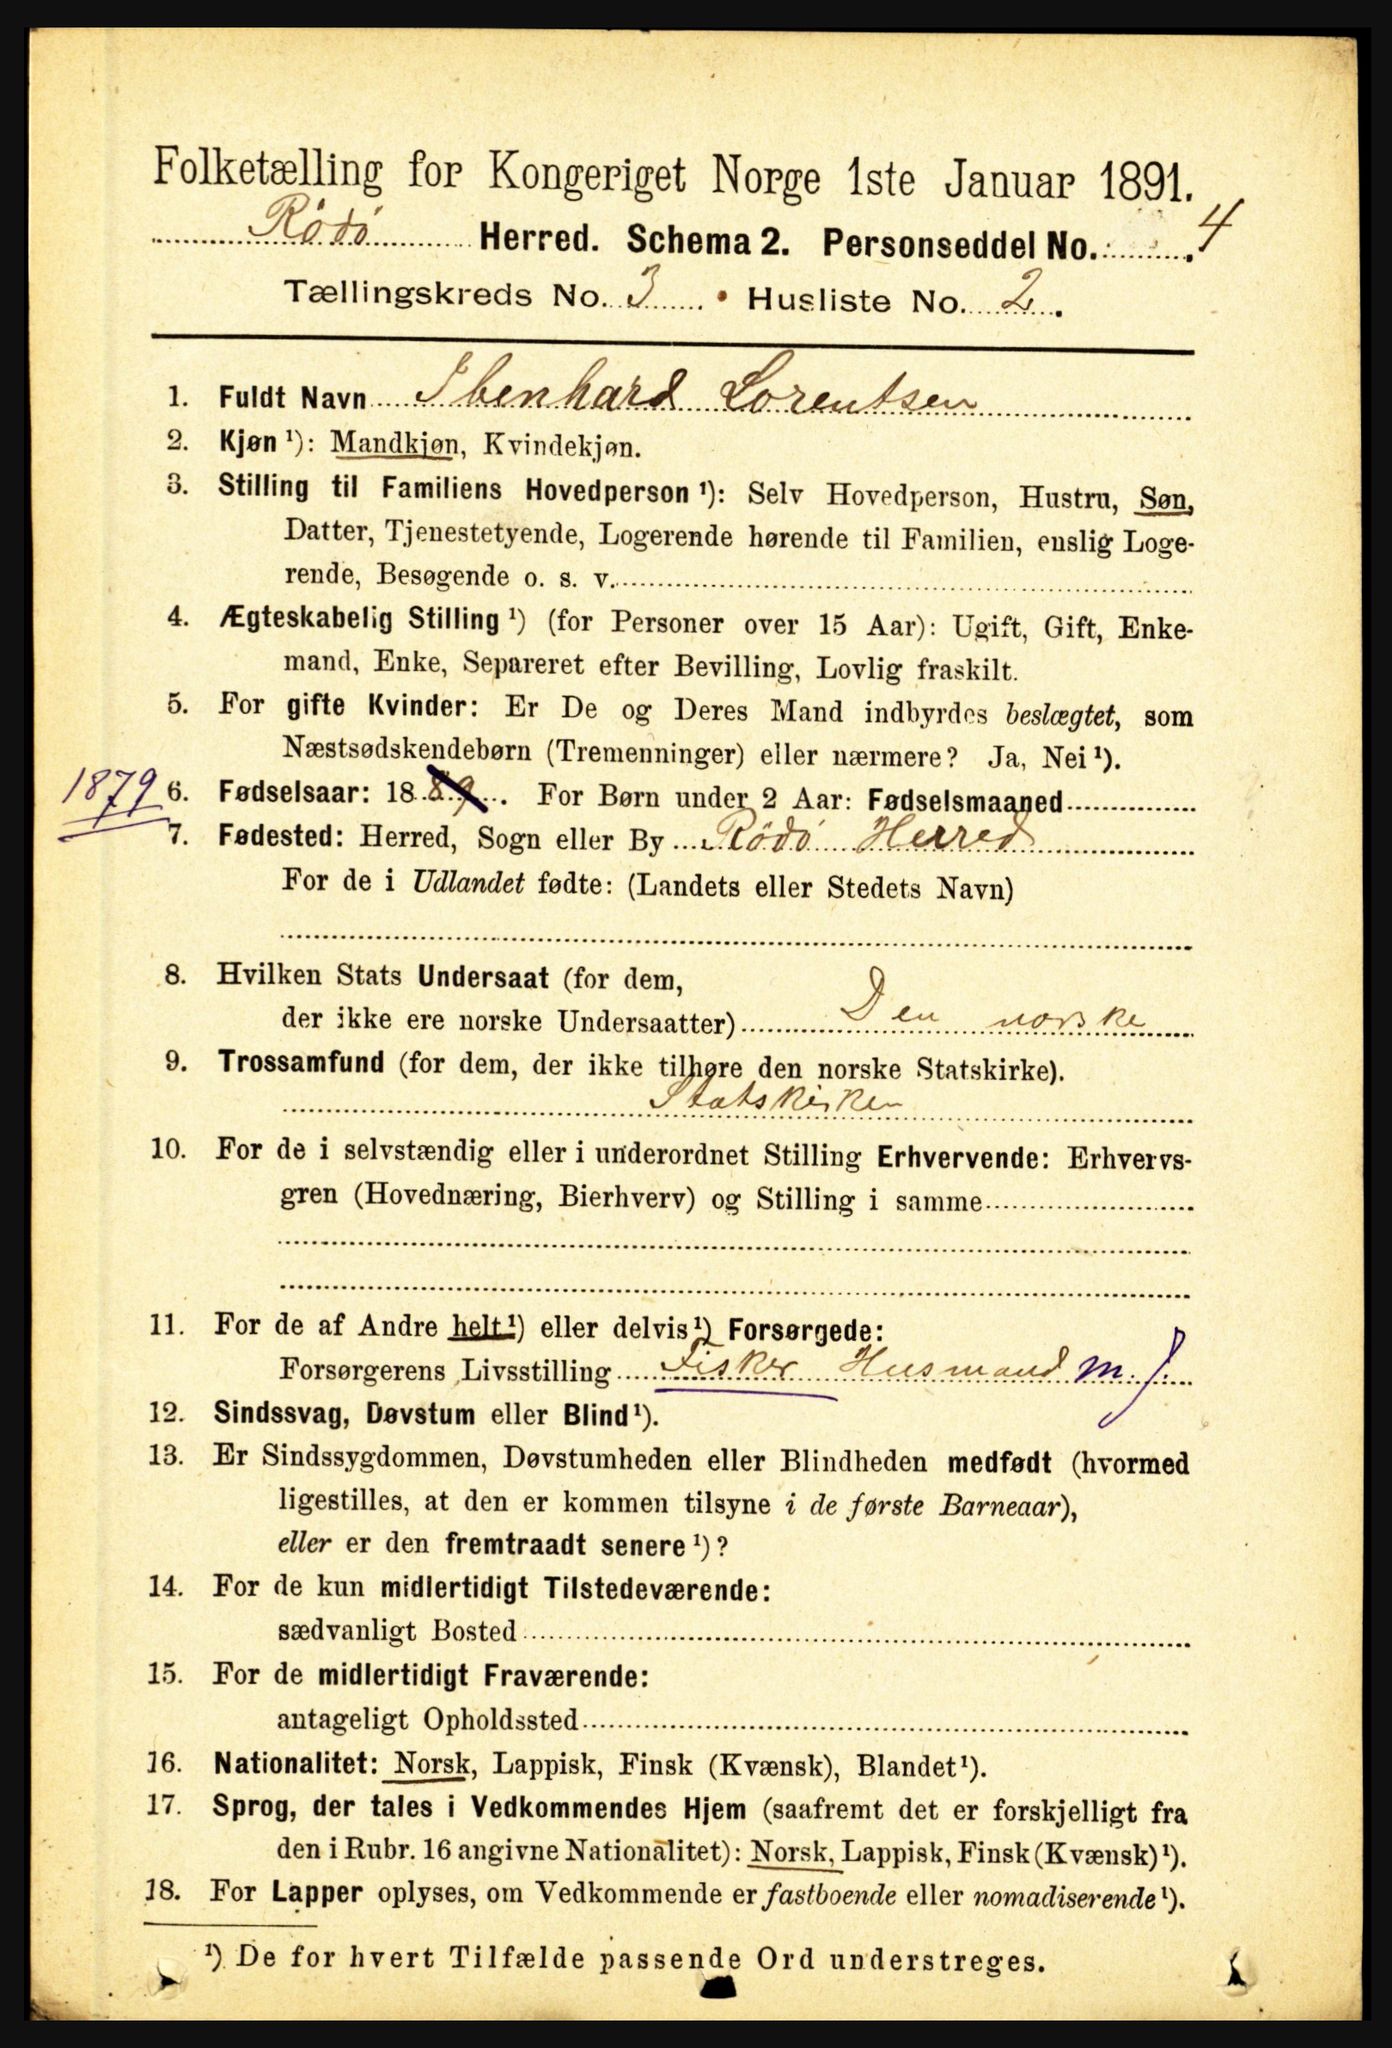 Folketælling for Kongeriget Norge 1ste Januar 1891.
Rödö Herred. Schema 2. Personseddel No. 4
Tællingskreds No. 3 Husliste No. 2.
1. Fuldt Navn Ibenhard Lorentsen
2. Kjøn ¹): Mandkjøn, Kvindekjøn.
3. Stilling til Familiens Hovedperson ¹): Selv Hovedperson, Hustru, Søn,
Datter, Tjenestetyende, Logerende hørende til Familien, enslig Loge-
rende, Besøgende o. s. v.
4. Ægteskabelig Stilling ¹) (for Personer over 15 Aar): Ugift, Gift, Enke-
mand, Enke, Separeret efter Bevilling, Lovlig fraskilt.
5. For gifte Kvinder: Er De og Deres Mand indbyrdes beslægtet, som
Næstsødskendebørn (Tremenninger) eller nærmere? Ja, Nei ¹).
1879 6. Fødselsaar: 18 89. For Børn under 2 Aar: Fødselsmaaned
7. Fødested: Herred, Sogn eller By Rödö Herred
For de i Udlandet fødte: (Landets eller Stedets Navn)
8. Hvilken Stats Undersaat (for dem,
der ikke ere norske Undersaatter) Den norske
9. Trossamfund (for dem, der ikke tilhøre den norske Statskirke).
Statskirken
10. For de i selvstændig eller i underordnet Stilling Erhvervende: Erhvervs-
gren (Hovednæring, Bierhverv) og Stilling i samme
11. For de af Andre helt ¹) eller delvis ¹) Forsørgede:
Forsørgerens Livsstilling Fisker Husmand m. J.
12. Sindssvag, Døvstum eller Blind ¹).
13. Er Sindssygdommen, Døvstumheden eller Blindheden medfødt (hvormed
ligestilles, at den er kommen tilsyne i de første Barneaar),
eller er den fremtraadt senere ¹)?
14. For de kun midlertidigt Tilstedeværende:
sædvanligt Bosted
15. For de midlertidigt Fraværende:
antageligt Opholdssted
16. Nationalitet: Norsk, Lappisk, Finsk (Kvænsk), Blandet ¹).
17. Sprog, der tales i Vedkommendes Hjem (saafremt det er forskjelligt fra
den i Rubr. 16 angivne Nationalitet): Norsk, Lappisk, Finsk (Kvænsk) ¹).
18. For Lapper oplyses, om Vedkommende er fastboende eller nomadiserende ¹).
¹) De for hvert Tilfælde passende Ord understreges.